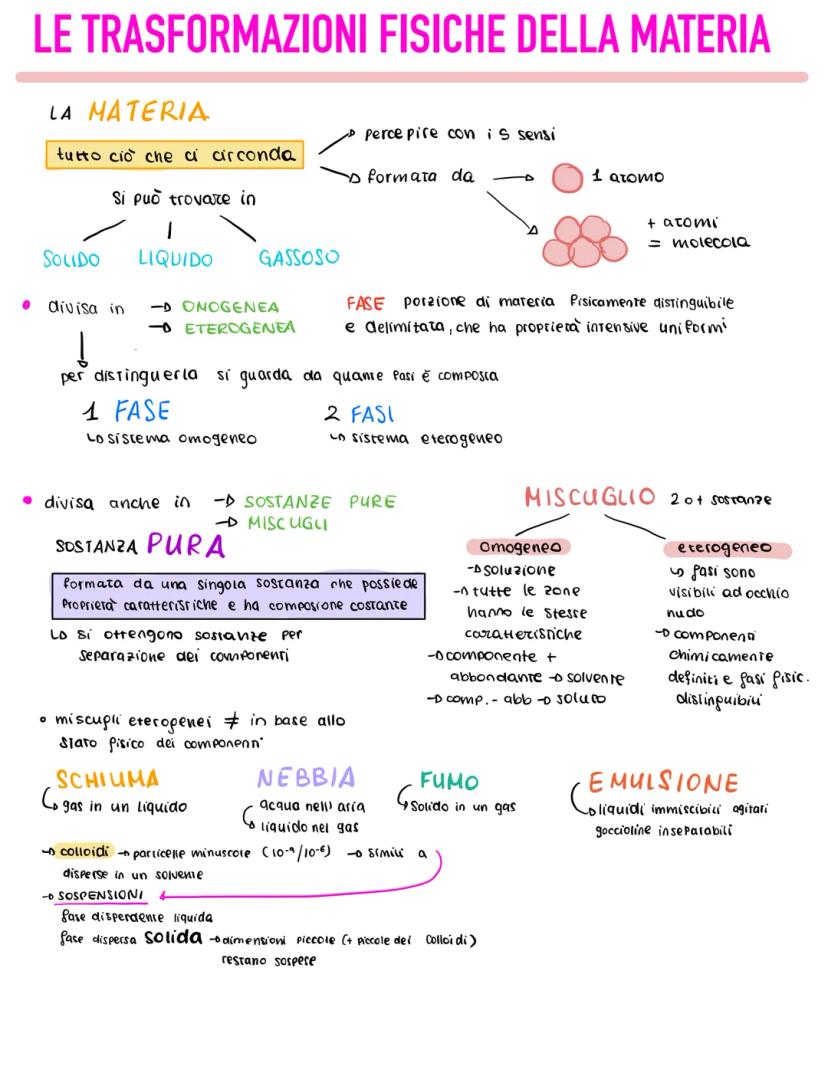 LE TRASFORMAZIONI FISICHE DELLA MATERIA
LA MATERIA
tutto ciò che ci circonda
percepire con i 5 sensi
formata da
1 atomo
+ atomi
= molecola
Si può trovare in
SOLIDO LIQUIDO GASSOSO
• divisa in → OMOGENEA
→ ETEROGENEA
FASE porzione di materia fisicamente distinguibile
e delimitata, che ha proprietà intensive uniformi
per distinguerla si guarda da quante fasi è composta
1 FASE
↳ sistema omogeneo
2 FASI
↳ sistema eterogeneo
• divisa anche in → SOSTANZE PURE
→ MISCUGLI
SOSTANZA PURA
formata da una singola sostanza che possiede
proprietà caratteristiche e ha composione costante
↳ si ottengono sostanze per
separazione dei componenti
MISCUGLIO 2 o + sostanze
omogeneo
→ soluzione
→ tutte le zone
hanno le stesse
caratteristiche
→ componente +
abbondante → solvente
→ comp. - abb → soluto
eterogeneo
↳ fasi sono
visibili ad occhio
nudo
→ componenti
chimicamente
definiti e fasi fisic.
distinguibili
• miscupli eterogenei ≠ in base allo
stato fisico dei componenti
SCHIUMA
↳ gas in un liquido
NEBBIA
acqua nell' aria
↳ liquido nel gas
FUMO
↳ Solido in un gas
EMULSIONE
↳ liquidi immiscibili agitati
goccioline inseparabili
→ colloidi → particelle minuscole (10⁻⁹/10⁻⁶) → simili a
disperse in un solvente
→ SOSPENSIONI
fase disperdente liquida
fase dispersa solida → dimensioni piccole (+ piccole dei colloidi)
restano sospese